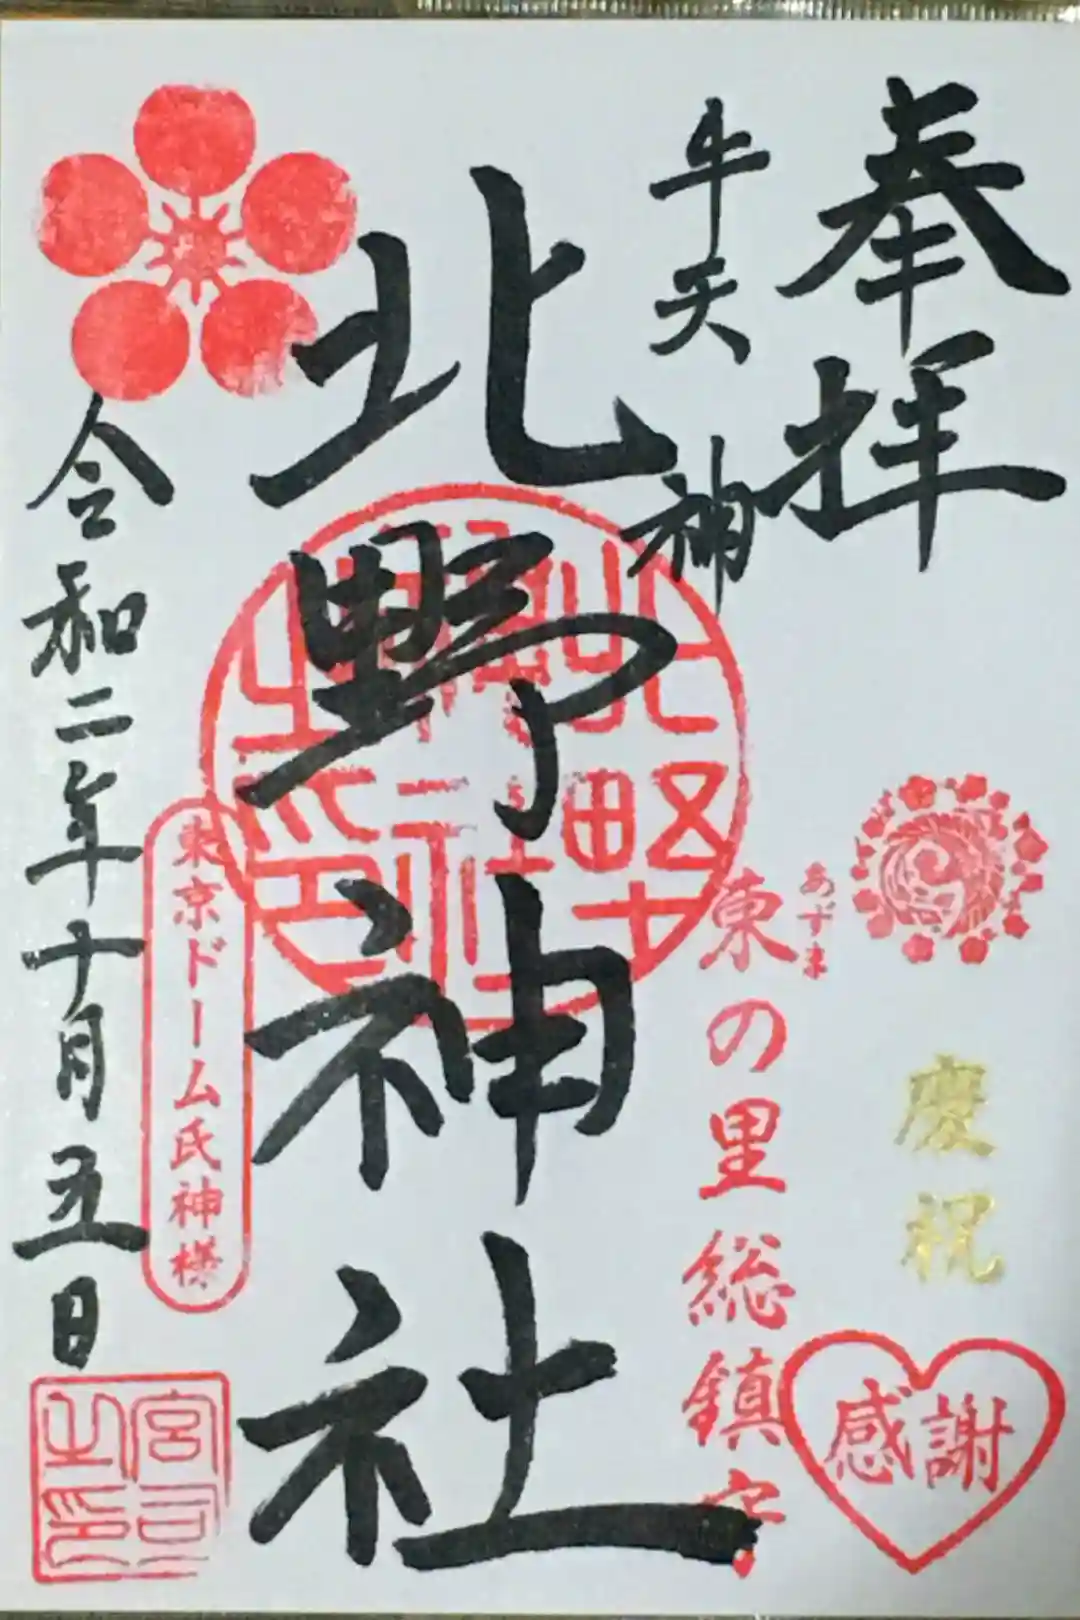 奉拝
牛天神
北野神社
令和二年十月五日
東京ドーム氏神様
あずま
東の里総鎮守
慶祝
感謝
北野神社之印
宮司之印